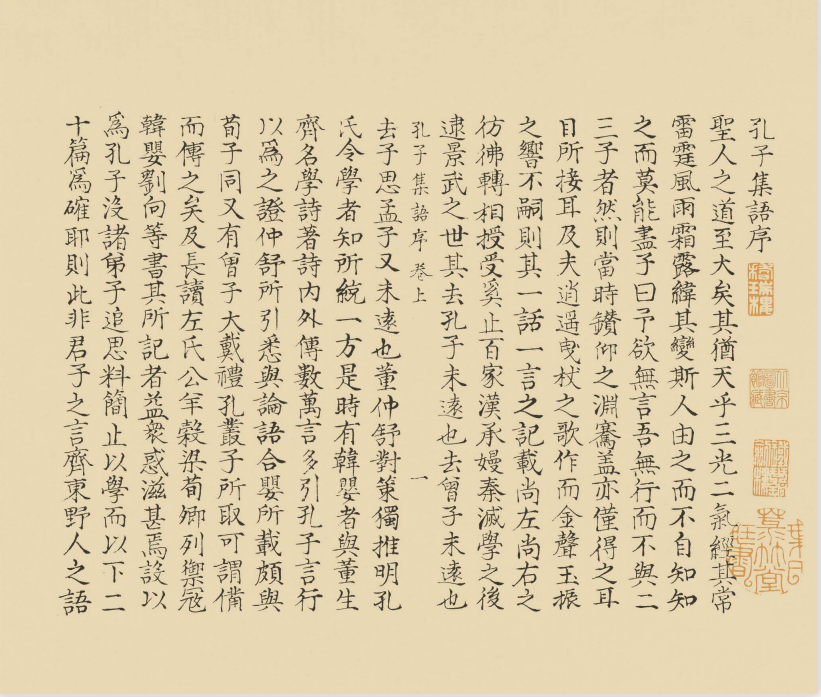 孔子集語序
聖人之道至大矣其猶天乎三光二氣經其常
雷霆風雨霜露緯其變斯人由之而不自知知
之而莫能盡子曰予欲無言吾無行而不與二
三子者然則當時鑽仰之淵騫盖亦僅得之耳
目所接耳及夫逍遥曳杖之歌作而金聲玉振
之響不嗣則其一話一言之記載尚左尚右之
彷彿轉相授受奚止百家漢承嫚秦滅學之後
逮景武之世其去孔子未遠也去曾子未遠也
孔子集語序 卷上 一
去子思孟子又未遠也董仲舒對策獨推明孔
氏令學者知所統一方是時有韓嬰者與董生
齊名學詩著詩内外傳數萬言多引孔子言行
以為之證仲舒所引悉與論語合嬰所載頗與
荀子同又有曾子大戴禮孔叢子所取可謂備
而傳之矣及長讀左氏公羊穀梁荀卿列禦冦
韓嬰劉向等書其所記者益衆惑滋甚焉設以
為孔子沒諸弟子追思料簡止以學而以下二
十篇為確耶則此非君子之言齊東野人之語